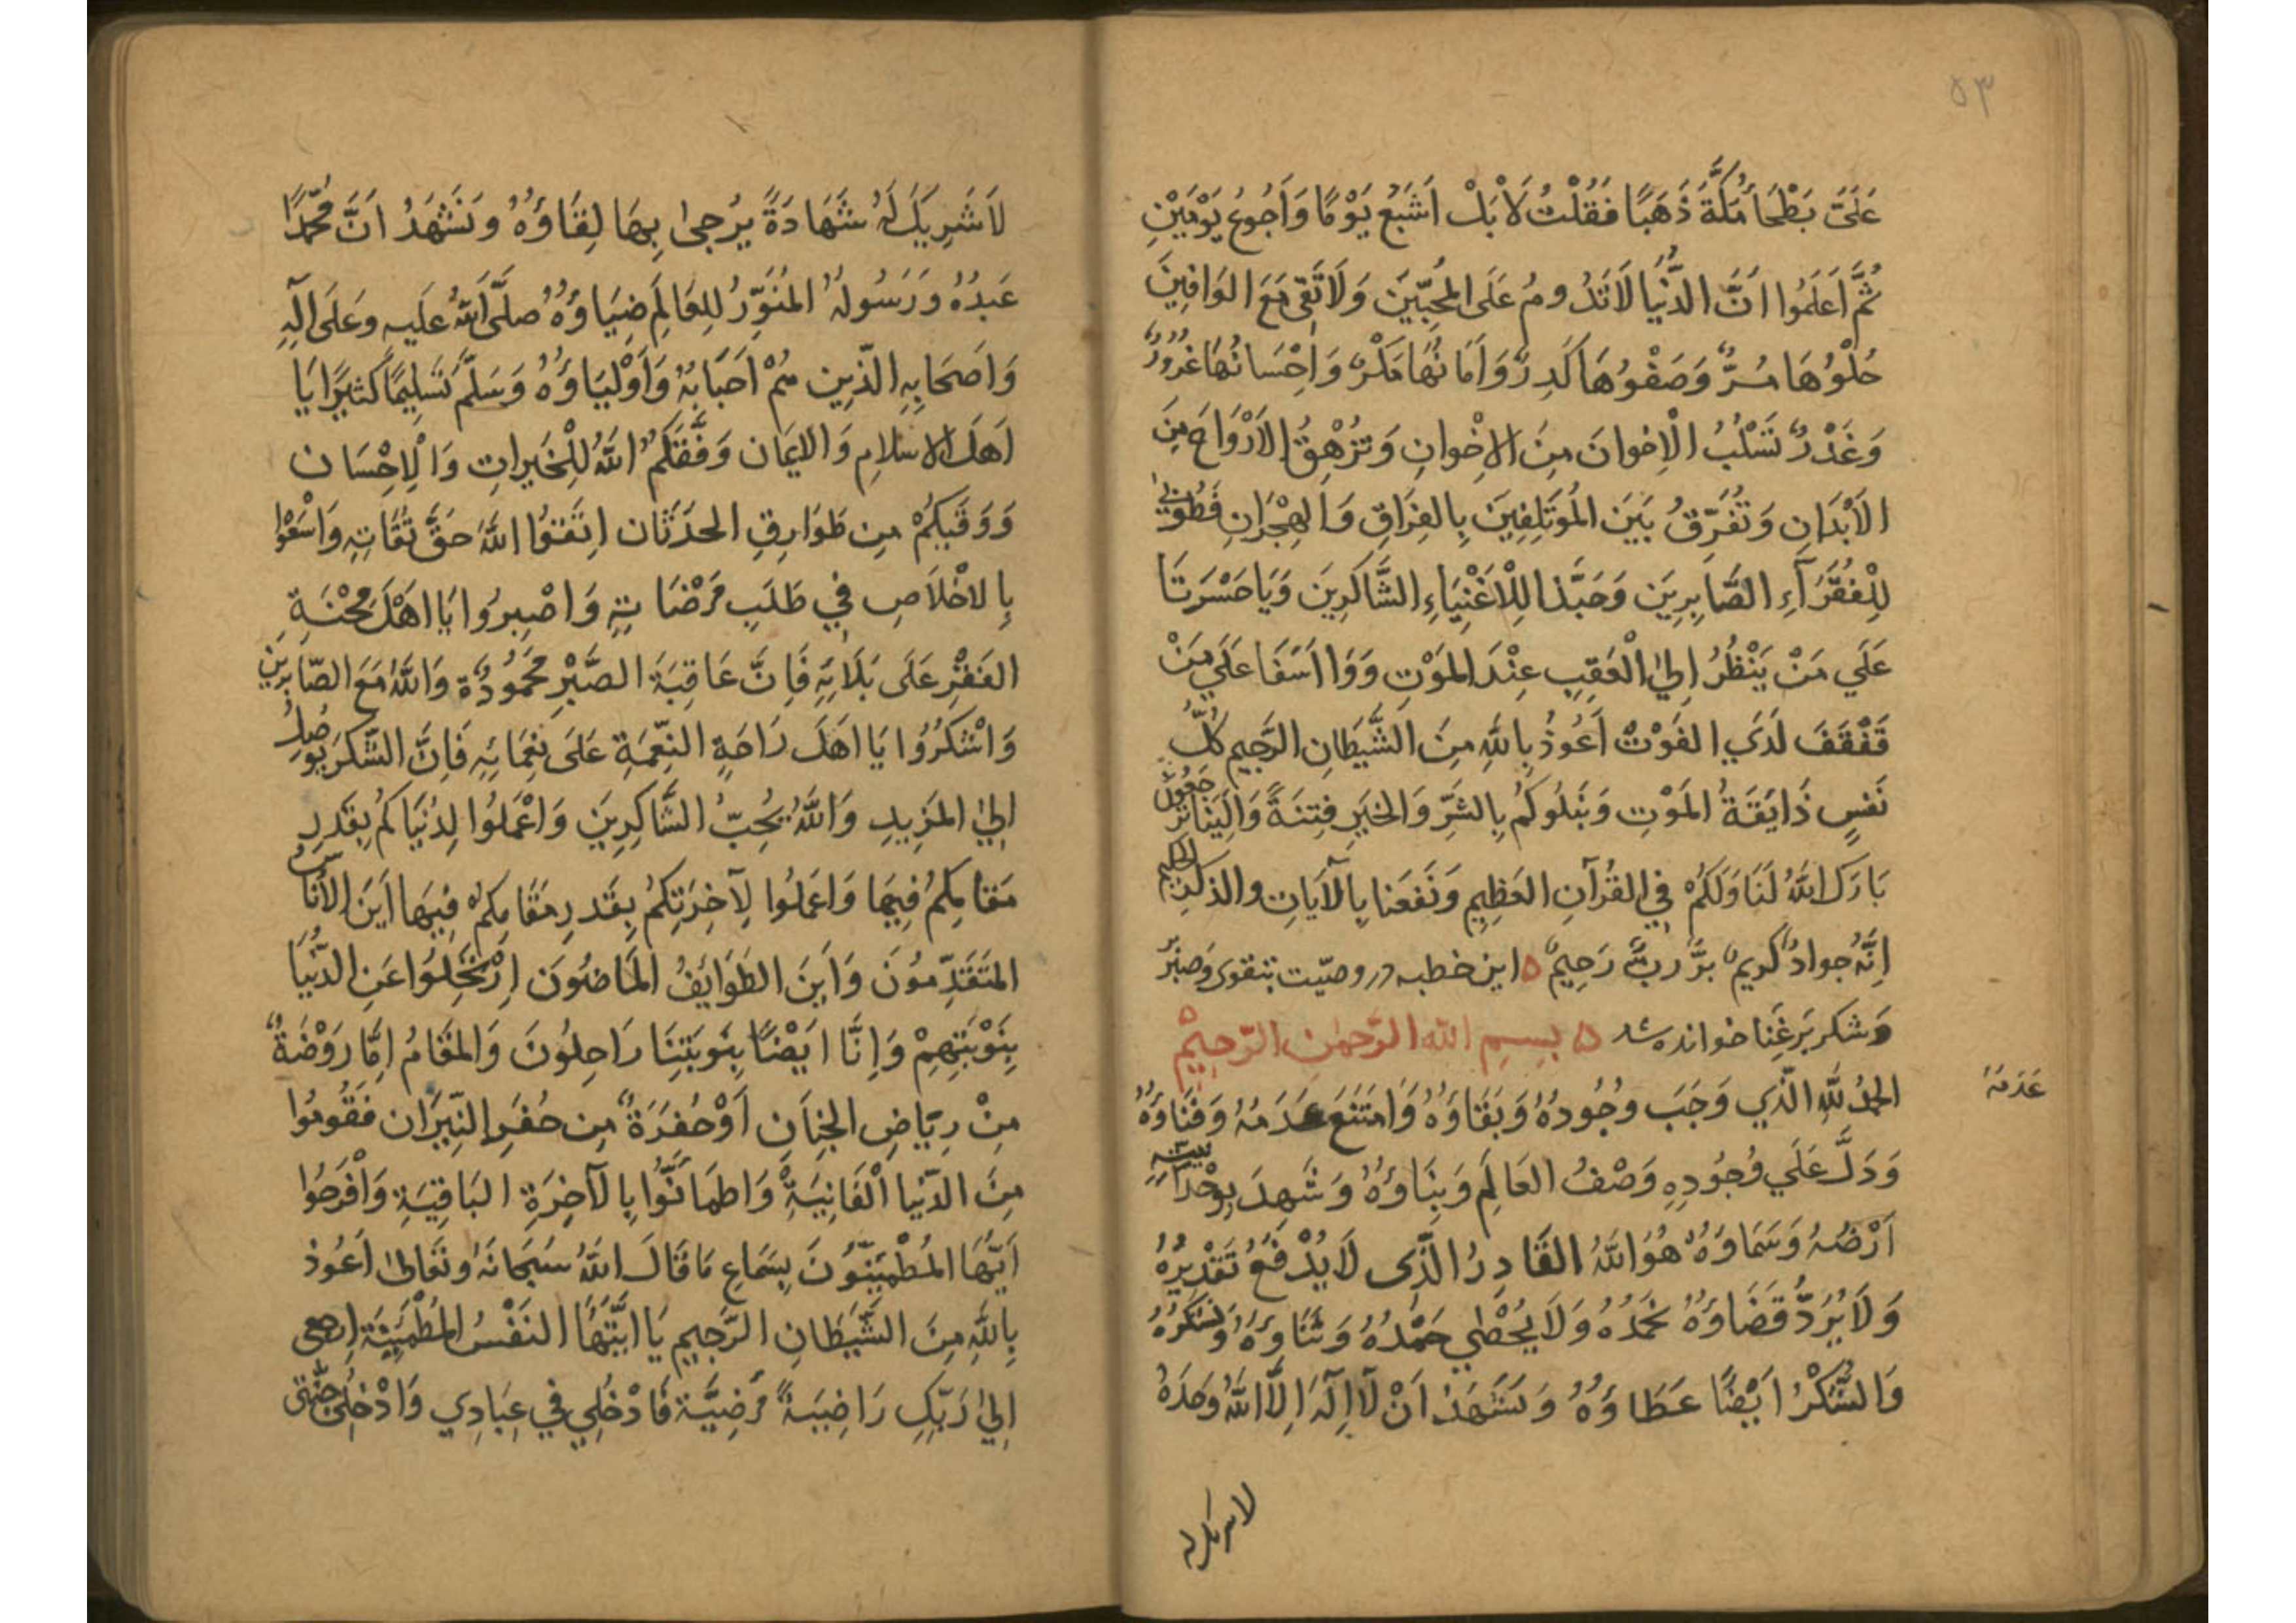 ٥٣
عَلَيَّ بَطْحَآءَ مَكَّةَ ذَهَبًا فَقُلْتُ لَا بَلْ اَشْبَعُ يَوْمًا وَاَجُوعُ يَوْمَيْنِ
ثُمَّ اَعْلَمُوا اَنَّ الدُّنْيَا لَا تَدُومُ عَلَى المُحِبِّيْنَ وَلَا تَبْقٰى مَعَ الوَافِيْنَ
حُلْوُهَا مُرٌّ وَصَفْوُهَا كَدِرٌ وَاَمَانُهَا مَكْرٌ وَاِحْسَانُهَا غُرُورٌ
وَغَدْرٌ تَسْلُبُ الْاِخْوَانَ مِنَ الاِخْوانِ وَتُزْهِقُ الاَرْوَاحَ مِنَ
الاَبْدَانِ وَتُفَرِّقُ بَيْنَ المُوتَلِفِيْنَ بِالفِرَاقِ وَالهِجْرَانِ فَطُوْبٰى
لِلْفُقَرَآءِ الصَّابِرِيَن وَحَبَّذا لِلْاَغْنِيَاءِ الشَّاكَرِيَن وَيَا حَسْرَتَا
عَلَي مَنْ يَنْظُرُ اِلٰي الْعَقِبِ عِنْدَ المَوْتِ وَوَا اَسَفَا عَلَي مَنْ
قَفْقَفَ لَدَي الفَوْتْ اَعُوذُ بِاللهِ مِنَ الشَّيْطَانِ الرَّجِيمِ كُلُّ
نَفْسٍ ذَايقَةُ المَوْتِ وَنَبْلُوكُمْ بِالشَّرِّ وَالخَيرِ فِتنَةً وَاِلَيْنَا تُرْجَعُونَ
بَارَكَ اللهُ لَنَا وَلَكُمْ فِي القُرْآنِ العَظِيمِ وَنَفَعَنا بِالآيَاتِ والذكرِ الحكيم
اِنَّهُ جوادٌ كَريمٌ بَرٌّ ربٌّ رَحِيمٌ ۵ اين خطبه در وصيّت بتقوى وَصبْر
وَشكر بَرغَنِا خوانده شد ۵ بِسمِ اللهِ الرَّحمٰنِ الرَّحِيْمِ
الحَمْدُ لِلّٰهِ الَّذِي وَجَبَ وُجُودُهُ وَبَقَاؤَهُ وَامْتَنَعَ عَدَمُهُ وَفَنَاؤُهُ
عَدَمُهُ
وَدَلَّ عَلَي وُجُودِهِ وَصْفُ العَالَمِ وَبِنَاؤُهُ وَشَهِدَ بِوَحْدَانِيَّتِهِ
اَرْضُهُ وَسَمَاؤُهُ هُوَ اللهُ القَادِرُ الَّذِى لَا يُدْفَعُ تَقْدِيْرُهُ
وَلَا يُرَدُّ قَضَاؤُهُ نَحْمَدُهُ وَلَا يُحْصٰي حَمْدُهُ وَثَنَاؤُهُ وَنَشْكُرُهُ
وَالشُّكْرُ اَيْضًا عَطَاؤُهُ وَنَشْهَدُ اَنْ لَا اِلٰهَ اِلَّا اللهُ وَحدَهُ
لا شريك له
لَا شَرِيكَ لَهُ شَهَادَةً يُرْجٰى بِهَا لِقَاؤُهُ وَنَشْهَدُ اَنَّ مُحَمَّدًا
عَبدُهُ وَرَسُولُهُ المُنَوِّرُ لِلعَالَمِ ضِيَاؤُهُ صلَّى اللهُ عَليهِ وَعَلَى آلِهِ
وَاَصحَابِهِ الَّذِين هُمْ اَحِبَّاؤُهُ وَاَوْلِيَاؤُهُ وَسَلَّمَ تَسْلِيْمًا كثيرًا يَا
اَهلَ الاسلامِ وَالايمَان وَفَّقَكُمُ اللهُ لِلْخَيراتِ وَالْاِحْسَان
وَوَقَيكُمْ مِن طَوَارِقِ الحدَثَان اِتَّقُوا اللهَ حَقَّ تُقَاتِهِ وَاسْعَوْا
بِالاخْلَاصِ فِي طَلَبِ مَرْضَاتِهِ وَاصْبِرُوا يَا اهْلَ مِحْنَةِ
الفَقْرِ عَلَى بَلَائِهِ فَاِنَّ عَاقِبَةَ الصَّبْرِ مَحْمُودَةٌ وَاللهُ مَعَ الصَّابِرِيْنَ
وَاشْكُرُوا يَا اَهلَ رَاحَةِ النِّعْمَةِ عَلَى نِعْمَائِهِ فَاِنَّ الشُّكرَ يُوصِلُ
اِلىٰ المَزِيدِ وَاللهُ يُحِبُّ الشَّاكِرِيْنَ وَاعْمَلُوا لِدُنْيَاكُمْ بِقَدرِ
مَقَامِكُمْ فِيهَا وَاعمَلُوا لِآخِرَتِكُمْ بِقَدرِ مَقَامِكُمْ فِيْهَا اَيْنَ الاُنَاسُ
المُتَقَدِّمُونَ وَاَيْنَ الطَوَايِفُ المَاضُونَ اِرْتَحَلُوا عَنِ الدُّنْيَا
بِنَوْبَتِهِمْ وَاِنَّا اَيْضًا بِنَوبَتِنَا رَاحِلُونَ وَالمَقَامُ اِمَّا رَوْضَةٌ
مِنْ رِيَاضِ الجِنَانِ اَوْ حُفرَةٌ مِن حُفَرِ النِّيرَان فَقُومُوا
مِنَ الدّنيا الْفَانِيَةِ وَاطمَانُّوا بِالآخِرَةِ البَاقِيَةِ وَافْرَحُوا
اَيُّهَا المُطْمَئِنُّونَ بِسَمَاعِ مَا قَالَ اللهُ سُبحَانَهُ وَتَعَالٰى اَعُوذ
بِاللهِ مِنَ الشَّيْطَانِ الرَّجِيمِ يَا ايَّتُهَا النَفْسُ المُطْمَئِنَّة اِرجعى
اِلىٰ رَبِّكِ رَاضِيَةً مَرضِيَّة فَادْخُلِي فِي عِبَادِي وَادْخُلِي جَنَّتى